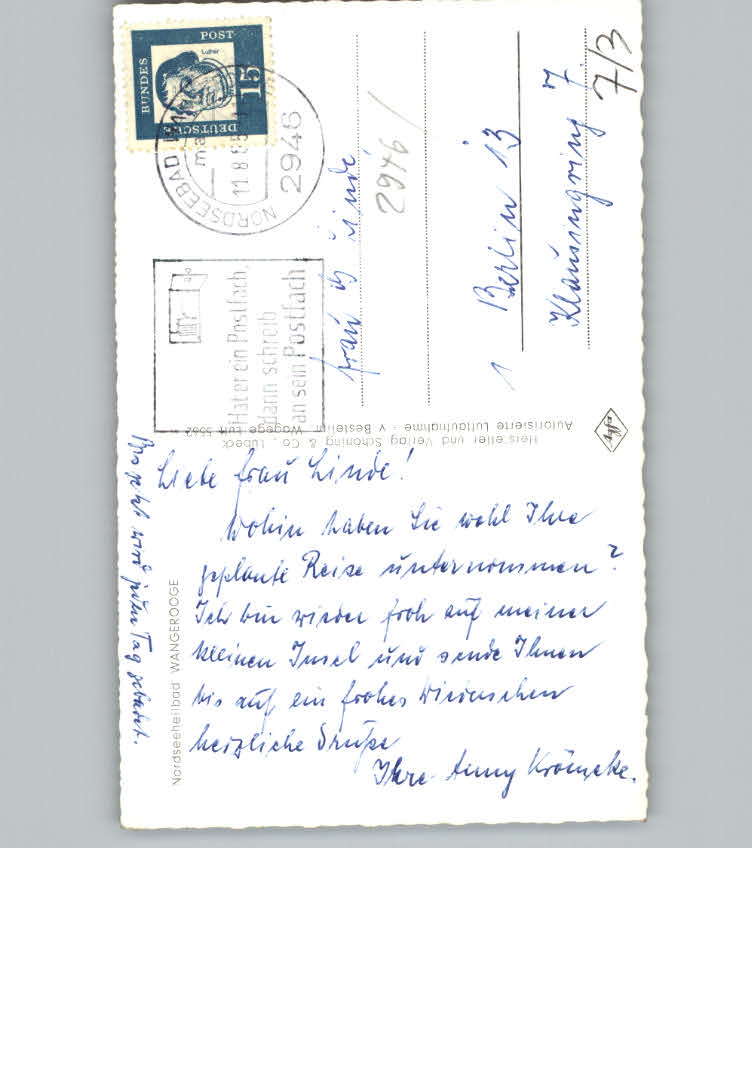 Liebe Frau Linde!
Wohin haben Sie wohl Ihre
geplante Reise unternommen?
Ich bin wieder froh auf meiner
kleinen Insel und sende Ihnen
bis auf ein frohes Wiedersehen
herzliche Grüße
Ihre Anny Krömeke.
Bis jetzt wird jeden Tag gebadet.
Nordseeheilbad WANGEROOGE
Hersteller und Verlag Schöning & Co., Lübeck
Autorisierte Luftaufnahme · v Bestellnr. Wagege Luft 5562
DEUTSCHE
BUNDES
POST
15
Luther
NORDSEEBAD
11.8.65
2946
Hat er ein Postfach,
dann schreib
an sein Postfach
Frau Linde
2946/
1 Berlin 13
Klausingring 7
7/3